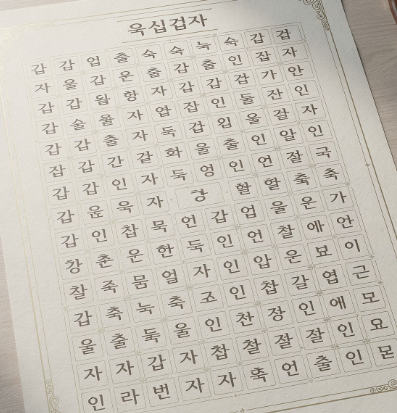 욱십겁자
갑 갑 업 출 숙 숙 늑 숙 갑 겁
자 울 갑 운 출 갑 출 인 잡 자
갑 갑 항 자 갑 갑 겁 가 안
갑 술 자 엽 잡 인 둘 잔 인
갑 갑 출 자 둑 겁 입 울 걸 자
잡 갑 간 겉 화 울 출 인 알 인
갑 갑 인 자 둑 영 인 언 절 국
갑 욱 자 강 활 할 축 축
갑 인 찹 목 언 갑 업 울 운 가
춘 운 한 둑 인 언 찰 애 안
찰 죽 뭄 얼 자 인 압 운 묘 이
갑 축 눅 축 조 인 찹 갈 엽 근
울 출 둑 울 인 천 장 인 애 모
자 자 갑 자 찹 찰 잘 잘 인 요
인 라 번 자 자 언 출 인 몬